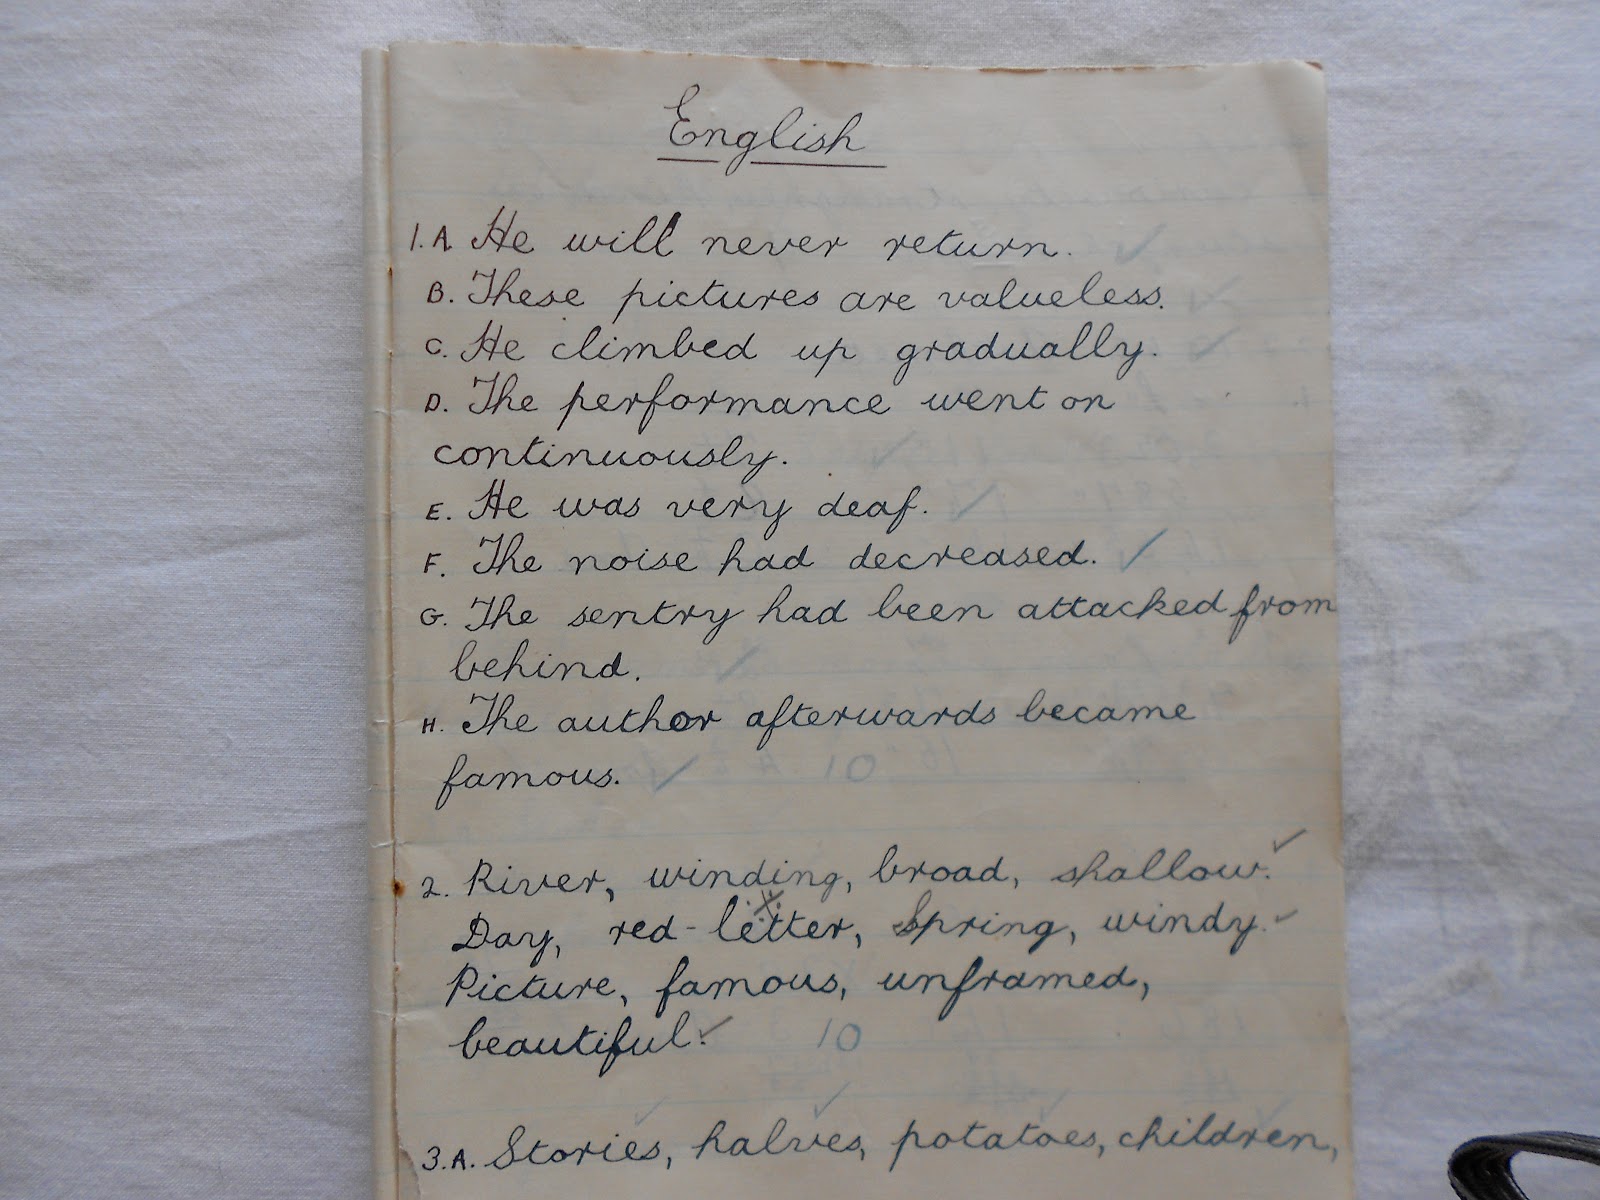 English
1. A. He will never return.
B. These pictures are valueless.
C. He climbed up gradually.
D. The performance went on
continuously.
E. He was very deaf.
F. The noise had decreased.
G. The sentry had been attacked from
behind.
H. The author afterwards became
famous.
2. River, winding, broad, shallow.
Day, red-letter, Spring, windy.
Picture, famous, unframed,
beautiful.
3. A. Stories, halves, potatoes, children,